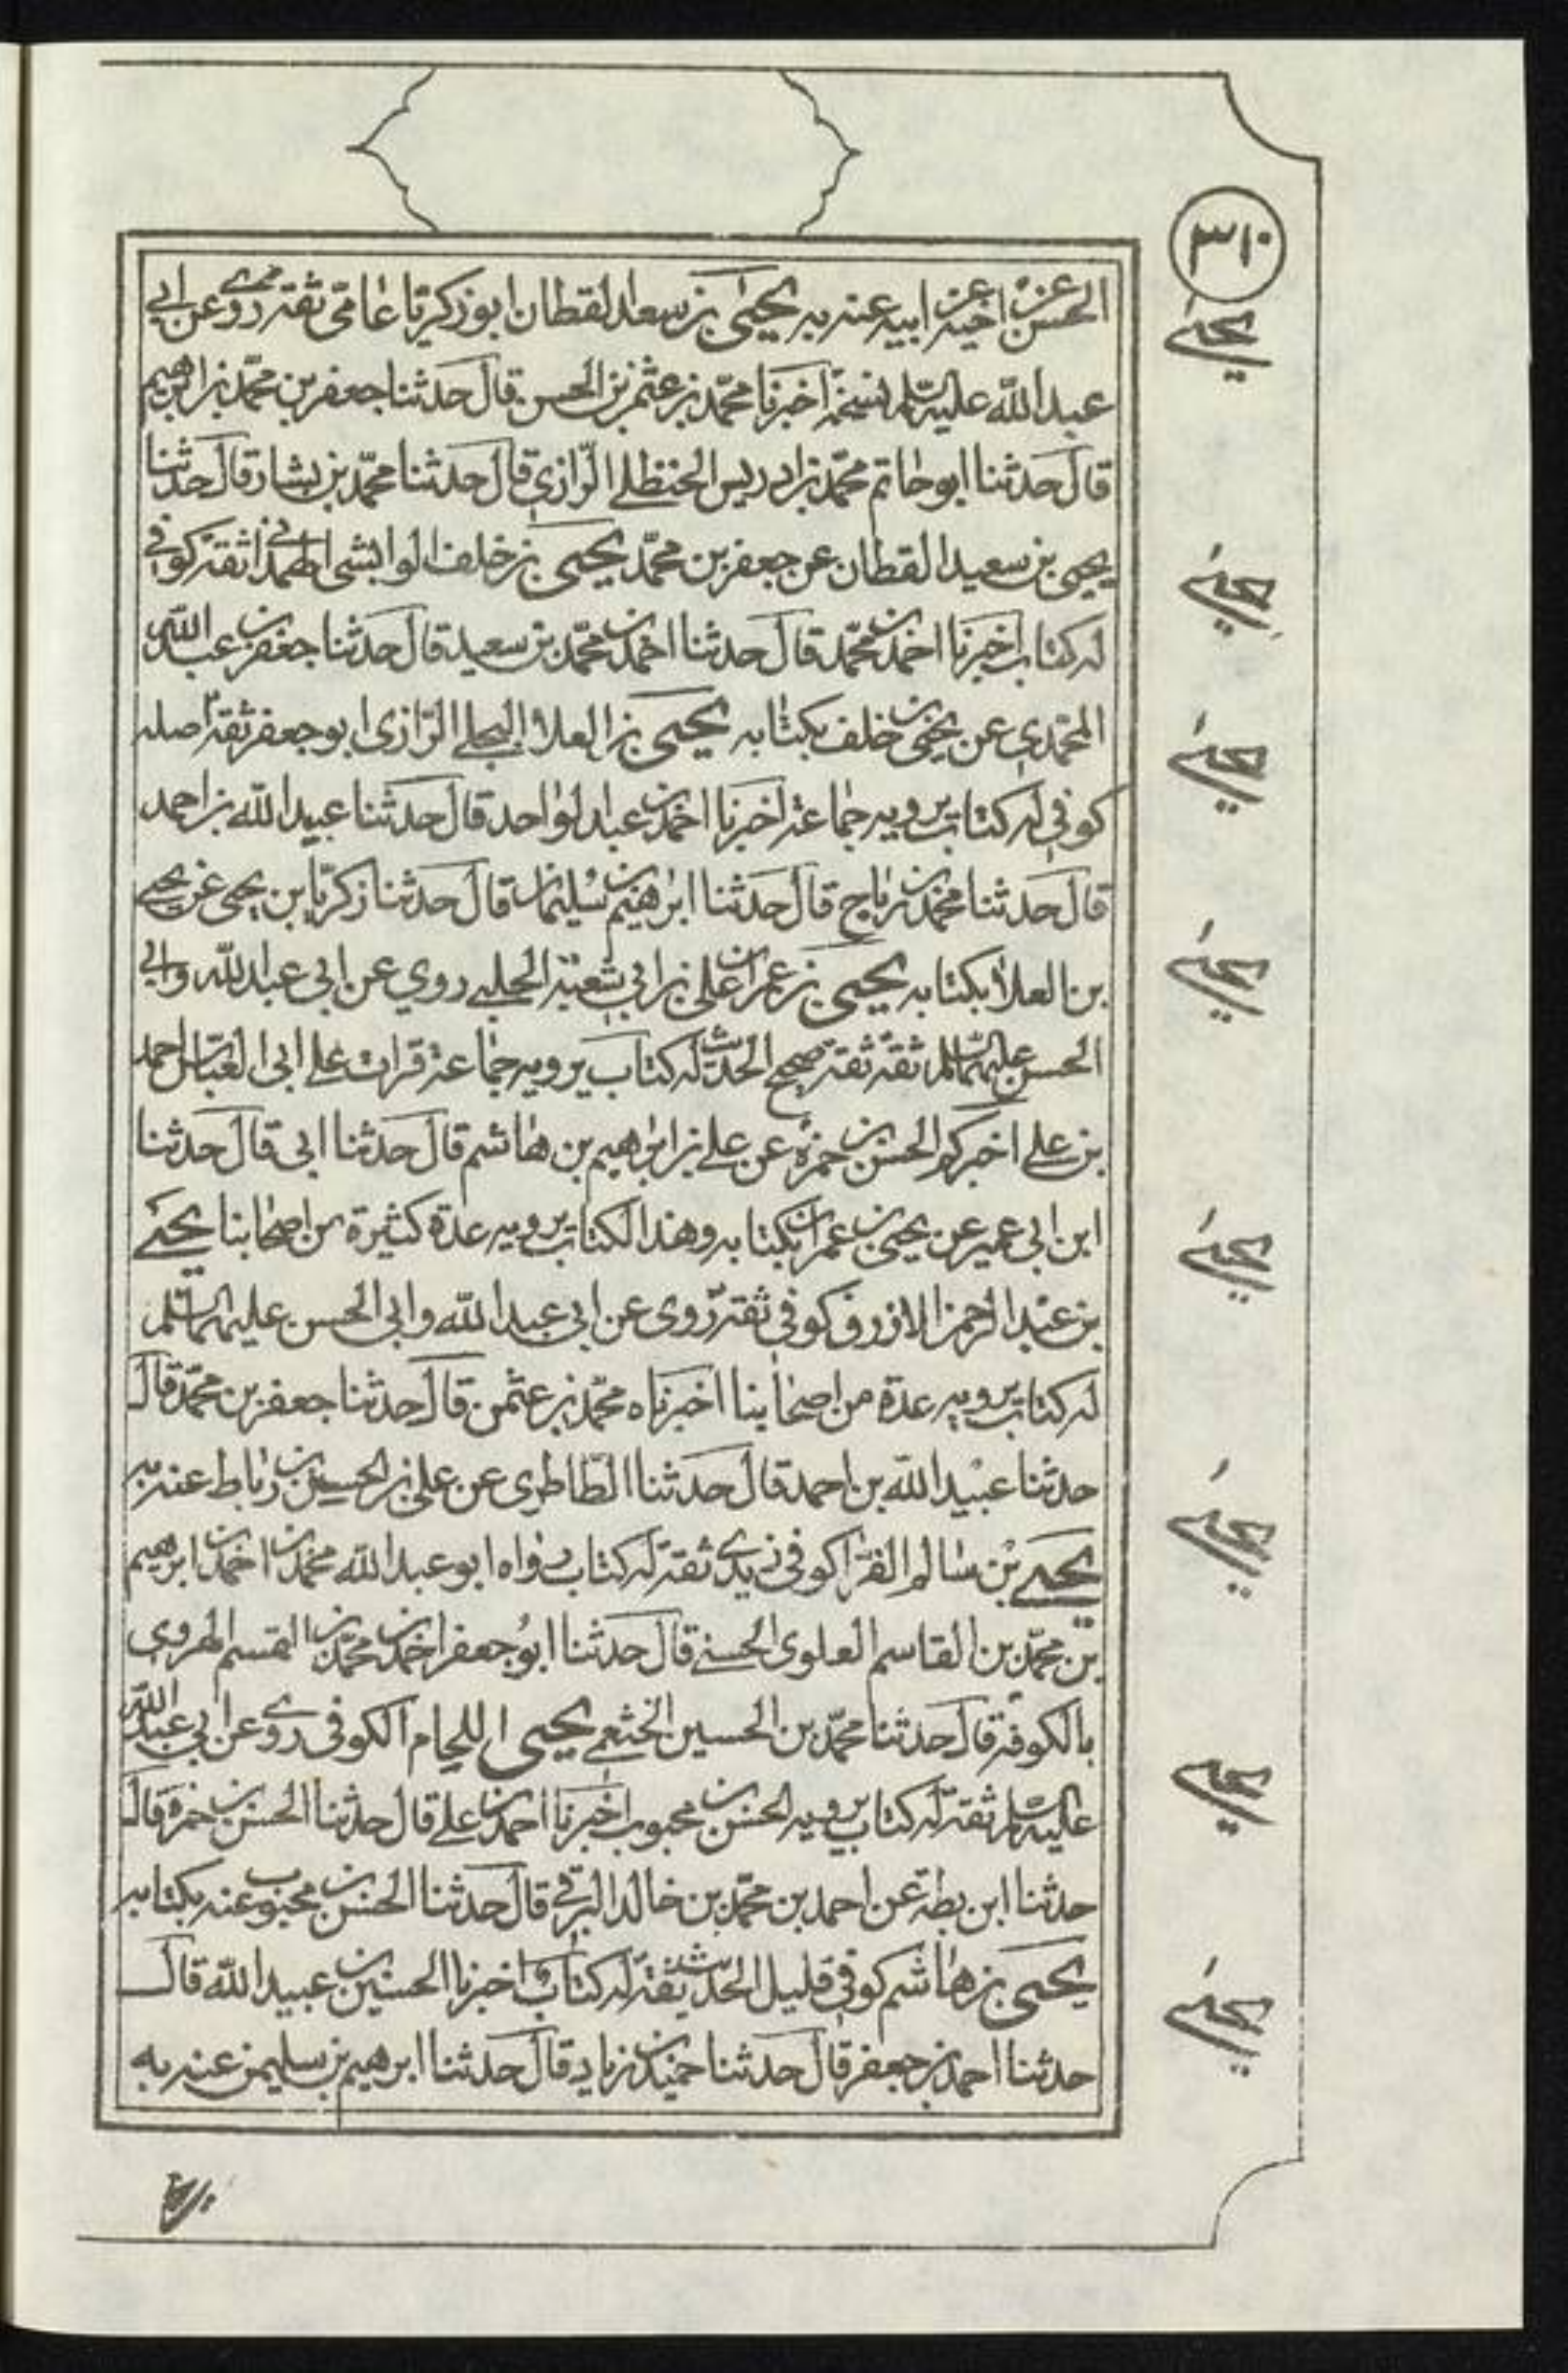 ٣١٠
الحسن عن اخيه عن ابيه عنه به يحيى بن سعيد القطان ابو زكريا عامى ثقة روى عن ابى
يحيى
عبدالله عليه السلم نسخة اخبرنا محمد بن عثمن بن الحسن قال حدثنا جعفر بن محمد بن ابرهيم
قال حدثنا ابو حاتم محمد بن ادريس الحنظلى الرازى قال حدثنا محمد بن بشار قال حدثنا
يحيى بن سعيد القطان عن جعفر بن محمد يحيى بن خلف الوابشى الهمدانى ثقة كوفى
يحيى
له كتاب اخبرنا احمد بن محمد قال حدثنا احمد بن محمد بن سعيد قال حدثنا جعفر بن عبدالله
المحمدى عن يحيى بن خلف بكتابه يحيى بن العلاء البجلى الرازى ابو جعفر ثقة اصله
يحيى
كوفى له كتاب يرويه جماعة اخبرنا احمد بن عبدالواحد قال حدثنا عبيدالله بن احمد
قال حدثنا محمد بن رباح قال حدثنا ابرهيم بن سليمان قال حدثنا زكريا بن يحيى عن يحيى
بن العلا بكتابه يحيى بن عمران بن على بن ابى شعبة الحلبى روى عن ابى عبدالله وابى
يحيى
الحسن عليهما السلم ثقة ثقة صحيح الحديث له كتاب يرويه جماعة قرات على ابى العباس احمد
بن على اخبركم الحسن بن حمزه عن على بن ابرهيم بن هاشم قال حدثنا ابى قال حدثنا
ابن ابى عمير عن يحيى بن عمران بكتابه وهذا الكتاب يرويه عدة كثيرة من اصحابنا يحيى
يحيى
بن عبدالرحمن الازرق كوفى ثقة روى عن ابى عبدالله وابى الحسن عليهما السلم
له كتاب يرويه عدة من اصحابنا اخبرناه محمد بن عثمن قال حدثنا جعفر بن محمد قال
حدثنا عبيدالله بن احمد قال حدثنا الطاطرى عن على بن الحسين بن رباط عنه به
يحيى بن سالم الفرا كوفى زيدى ثقة له كتاب رواه ابو عبدالله محمد بن احمد بن ابرهيم
يحيى
بن محمد بن القاسم العلوى الحسنى قال حدثنا ابو جعفر احمد بن محمد بن القسم الهروى
بالكوفة قال حدثنا محمد بن الحسين الخثعمى يحيى اللحام الكوفى روى عن ابى عبدالله
يحيى
عليه السلم ثقة له كتاب يرويه الحسن بن محبوب اخبرنا احمد بن على قال حدثنا الحسن بن حمزه قال
حدثنا ابن بطة عن احمد بن محمد بن خالد البرقى قال حدثنا الحسن بن محبوب عنه بكتابه
يحيى بن هاشم كوفى قليل الحديث ثقة له كتاب اخبرنا الحسين بن عبيدالله قال
يحيى
حدثنا احمد بن جعفر قال حدثنا حميد بن زياد قال حدثنا ابرهيم بن سليمن عنه به